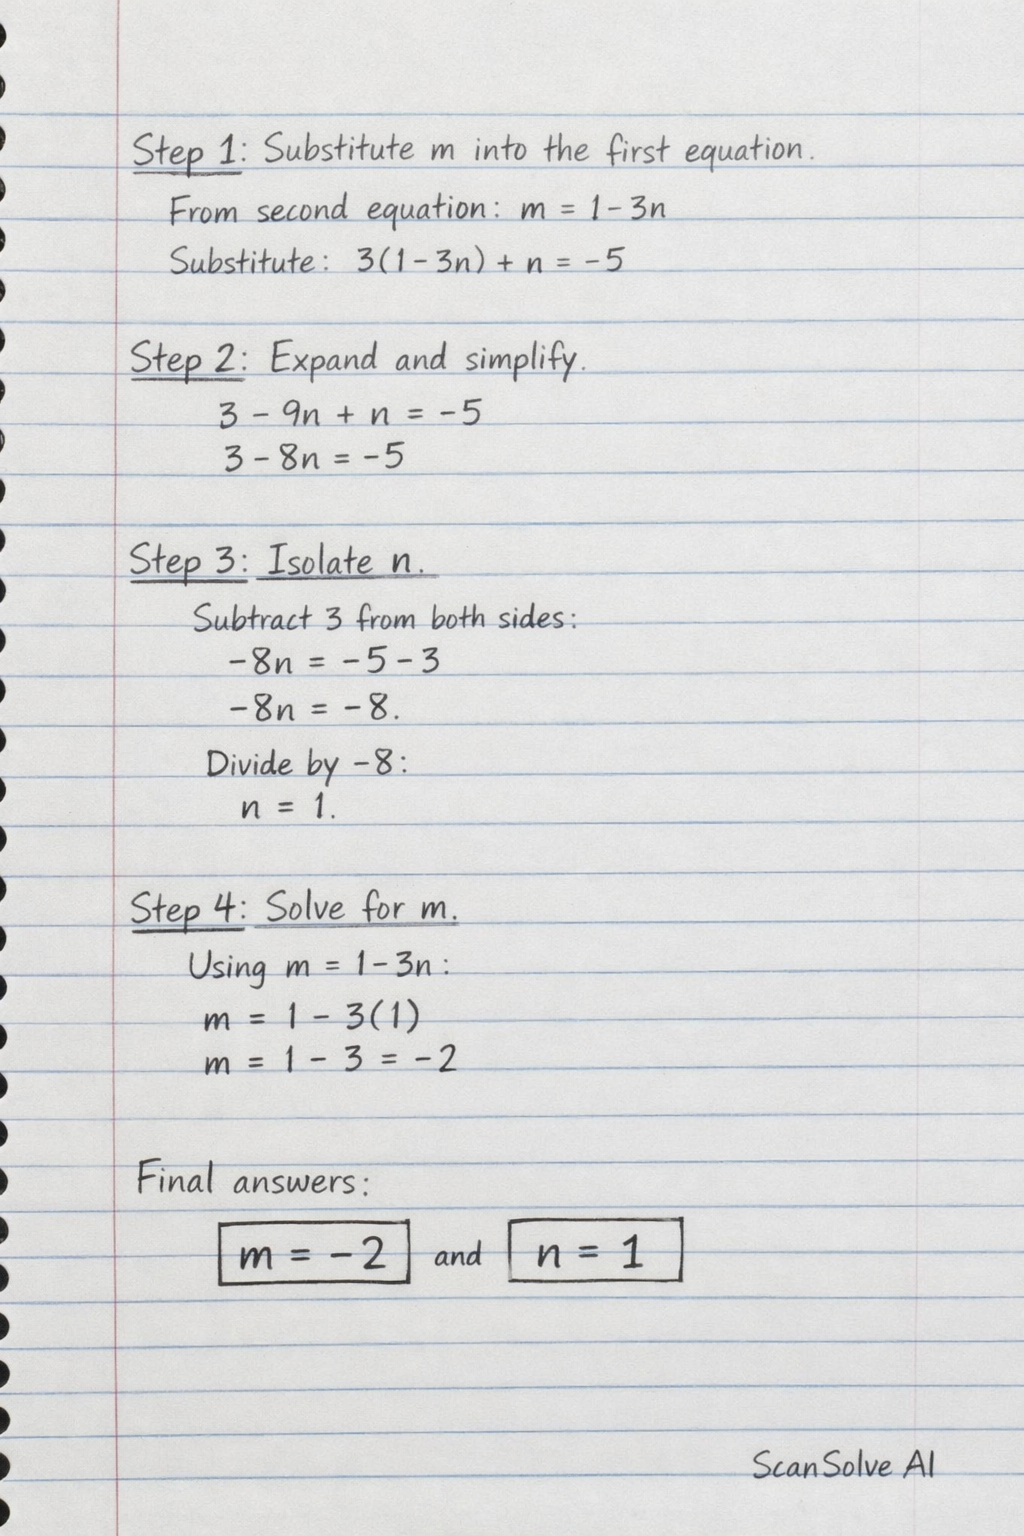 Step 1: Substitute m into the first equation.
From second equation: m = 1 - 3n
Substitute: 3(1 - 3n) + n = -5
Step 2: Expand and simplify.
3 - 9n + n = -5
3 - 8n = -5
Step 3: Isolate n.
Subtract 3 from both sides:
-8n = -5 - 3
-8n = -8.
Divide by -8:
n = 1.
Step 4: Solve for m.
Using m = 1 - 3n:
m = 1 - 3(1)
m = 1 - 3 = -2
Final answers:
m = -2 and n = 1
ScanSolve AI